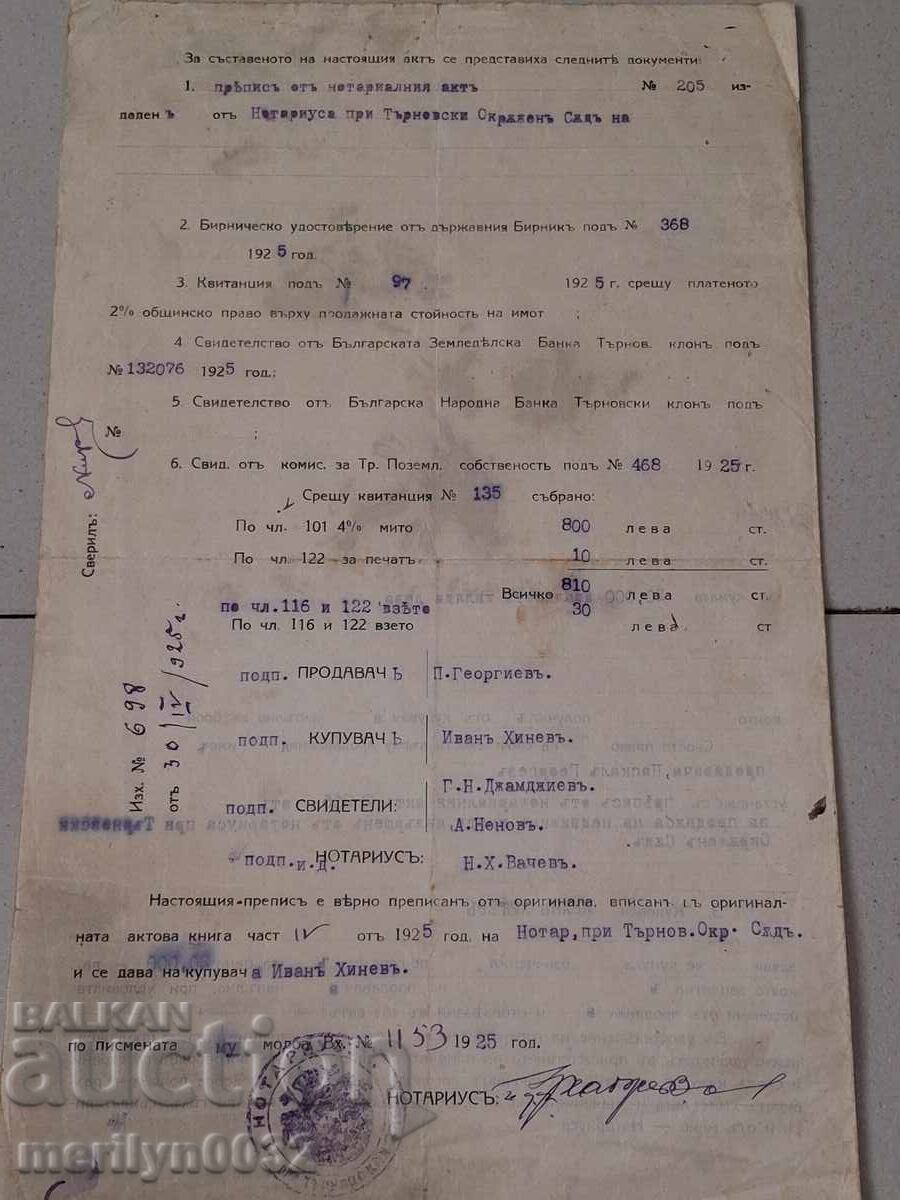 За съставеното на настоящия актъ се представиха следнитѣ документи:
1. прѣписъ отъ нотариалния актъ № 205 из-
даденъ отъ Нотариуса при Търновски Окрѫженъ Сѫдъ на
2. Бирническо удостовѣрение отъ държавния Бирникъ подъ № 368
1925 год.
3. Квитанция подъ № 97 1925 г. срещу платеното
2% общинско право върху продажната стойность на имот ;
4. Свидетелство отъ Българската Земледѣлска Банка Търнов. клонъ подъ
№ 132076 1925 год.;
5. Свидетелство отъ Българска Народна Банка Търновски клонъ подъ
№ ;
6. Свид. отъ комис. за Тр. Поземл. собственость подъ № 468 1925 г.
Срещу квитанция № 135 събрано:
По чл. 101 4% мито 800 лева ст.
По чл. 122 за печатъ 10 лева ст.
Всичко 810 лева ст.
по чл.116 и 122 взѣте 30
По чл. 116 и 122 взето лева ст
подп. ПРОДАВАЧЪ П.Георгиевъ.
подп. КУПУВАЧЪ Иванъ Хиневъ.
подп. СВИДЕТЕЛИ: Г.Н.Джамджиевъ.
А.Неновъ.
подп.и.д. НОТАРИУСЪ: Н.Х.Вачевъ.
Настоящия препис е вѣрно преписанъ отъ оригинала, вписанъ въ оригинал-
ната актова книга част IV отъ 1925 год. на Нотар,при Търнов.Окр. Сѫдъ.
и се дава на купувача Иванъ Хиневъ.
по писмената му молба Вх. № 1153 1925 год.
НОТАРИУСЪ:
Сверилъ:
Изх. № 698
отъ 30/IV/925 г.
BALKAN
auction
merilyn0032